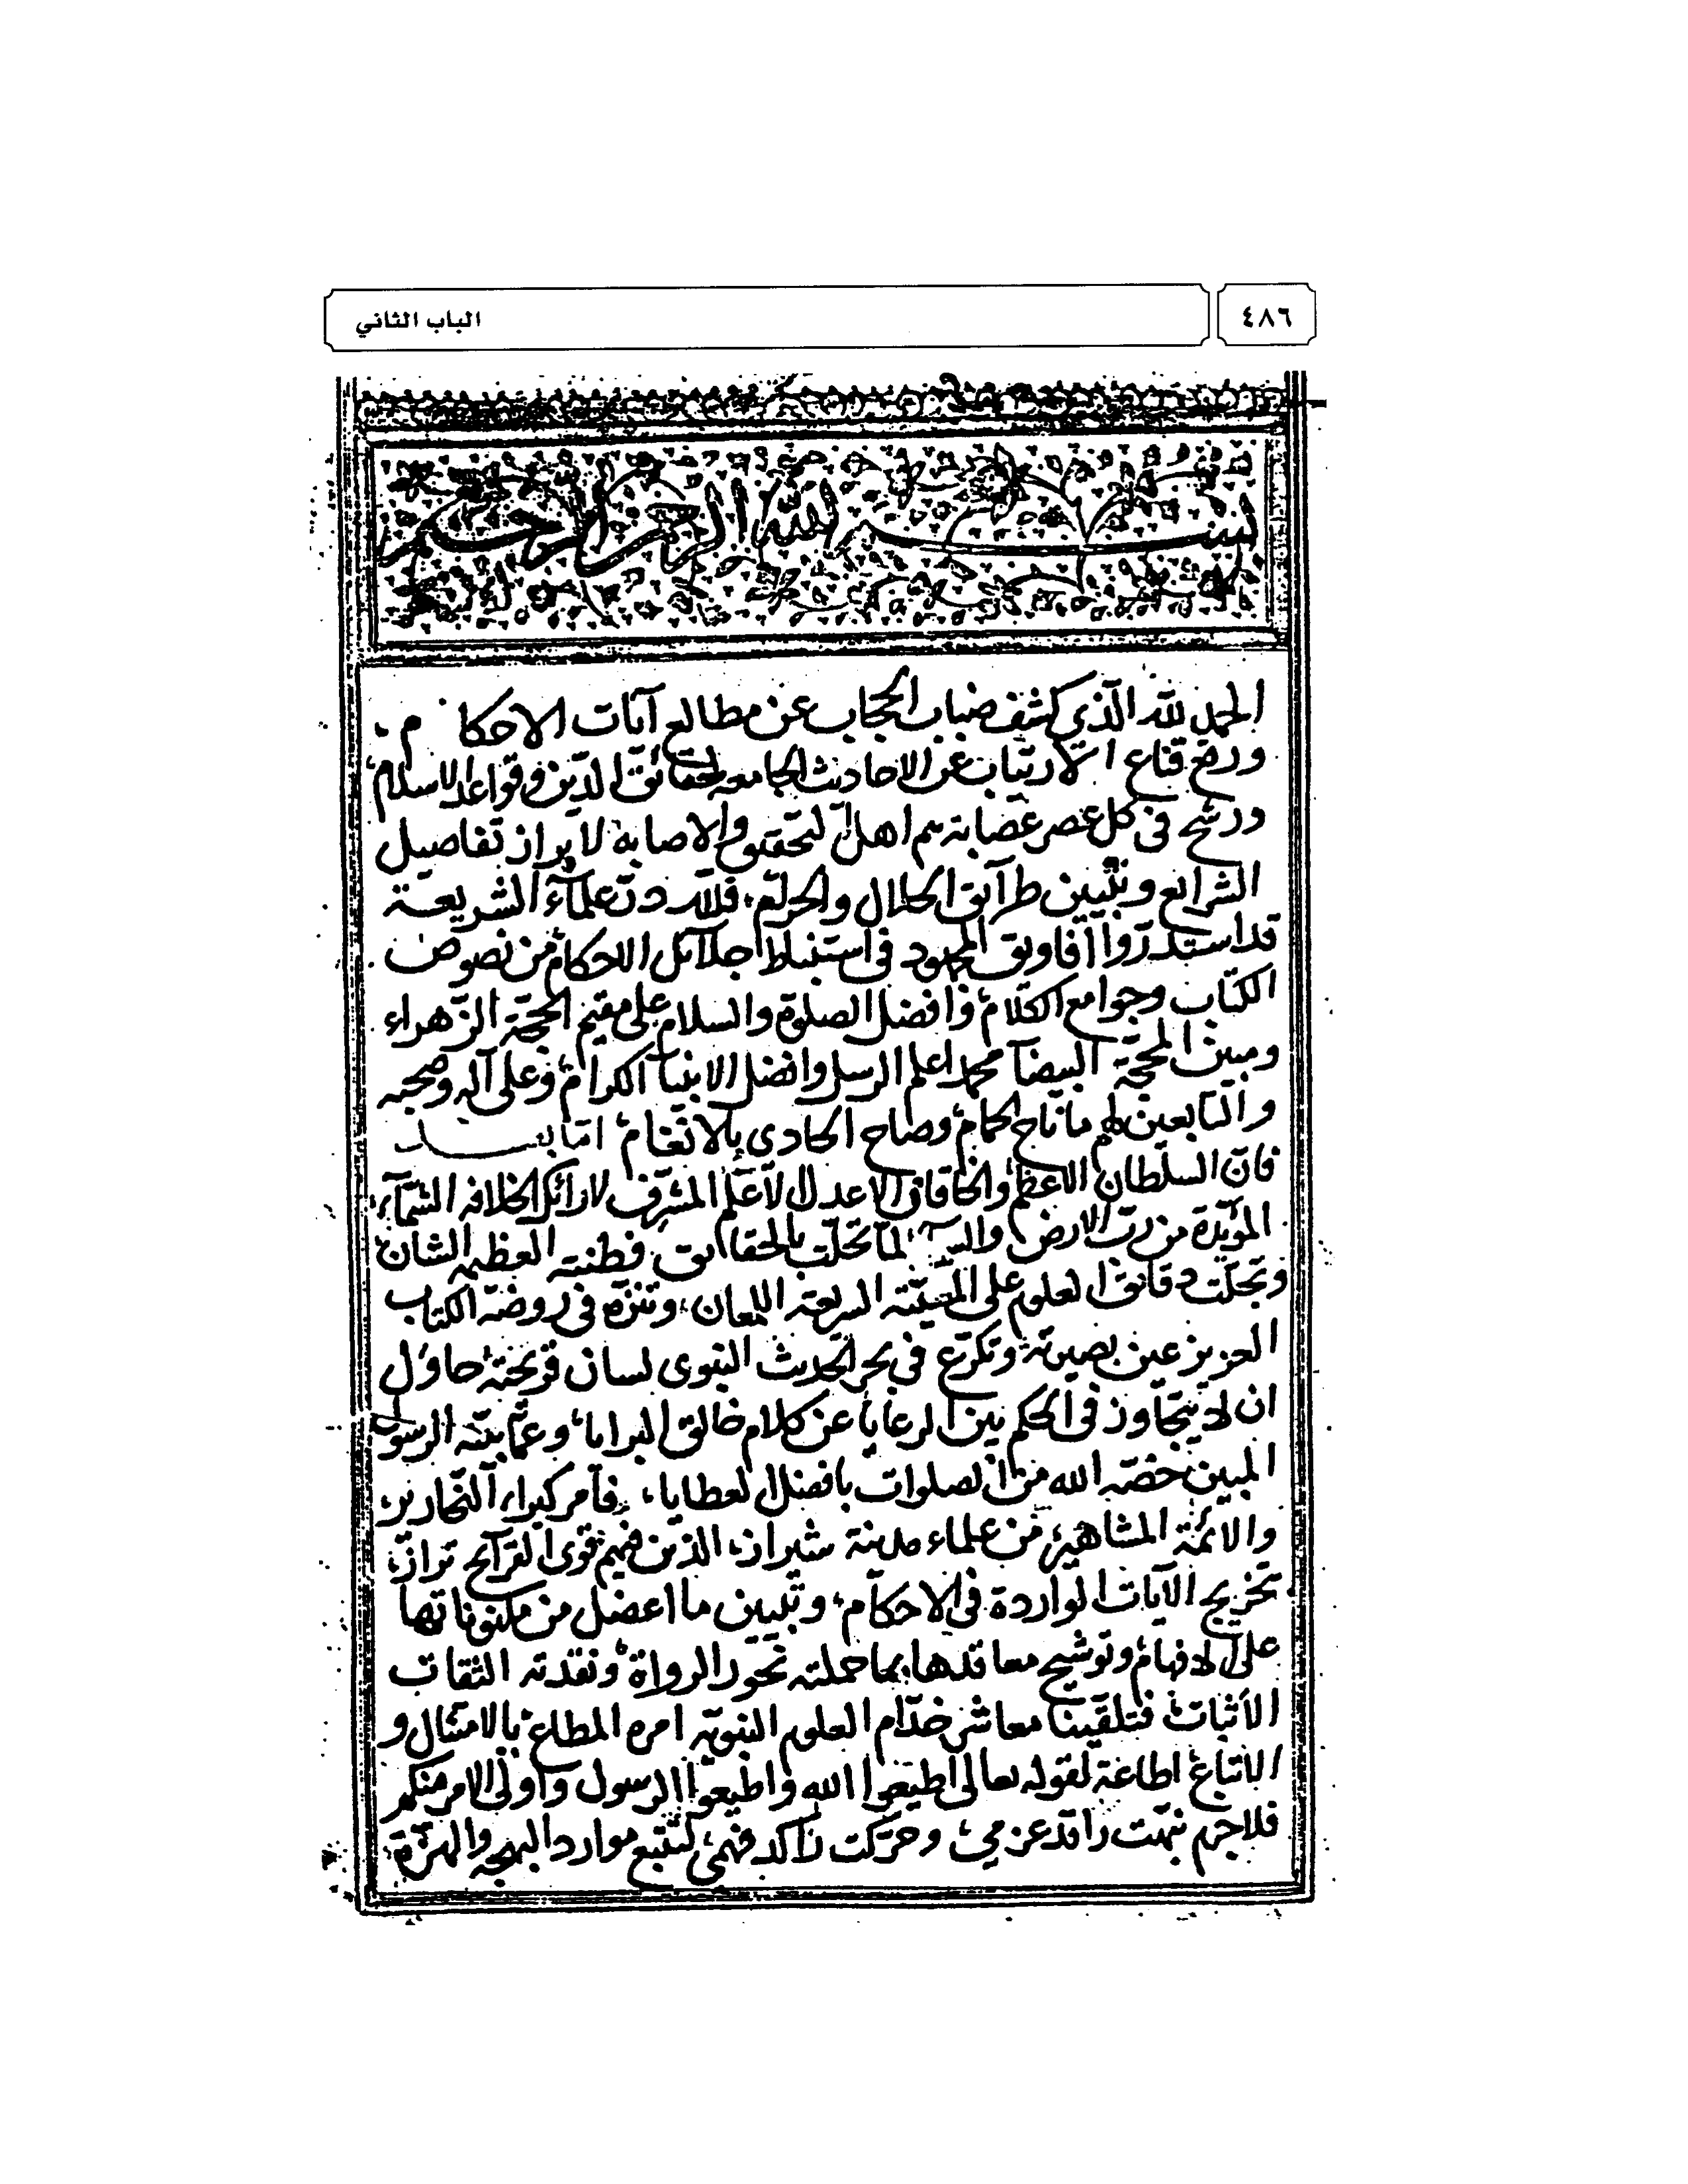 ٤٨٦
الباب الثاني
بسم الله الرحمن الرحيم
الحمد لله الذي كشف ضباب الحجاب عن مطالع آيات الاحكام
ورفع قناع الارتياب عن الاحاديث الجامعه لحقائق الدين وقواعد الاسلام
ورشح فى كل عصر عصابة هم اهل التحقيق والاصابه لابراز تفاصيل
الشرايع وتبيين طرآئق الحلال والحرام، علمآء الشريعة
قد استدرّوا افاويق المجهود فى استنباط جلآئل الاحكام من نصوص
الكتاب وجوامع الكلام وافضل الصلوة والسلام على مقيم الحجة الزهراء
ومبين المحجة البيضآ محمد اعلم الرسل وافضل الانبيآ الكرام وعلى آله وصحبه
والتابعين لهم ما ناح الحمام وصاح الحادى بالانغام اما بعد
فانّ السلطان الاعظم والخاقان الاعدل الاعلم المشرف لارائك الخلافه الشمآء
المؤيّدة من رب الارض والسمآ لما تحلّت بالحقايق فطنته العظيمه الشان
وتجلّت دقائق العلوم على السريعة اللمعان، وتنزّه فى روضة الكتاب
العزيز عين بصيرته وتكرّع فى بحر الحديث النبوى لسان قريحته حاول
ان لا يتجاوز فى الحكم بين الرعايا عن كلام خالق البرايا، وعمّا بيّنه الرسول
المبين خصّه الله من الصلوات بافضل العطايا، فامر كبراء النحارير،
والائمّة المشاهير، من علماء مدينة شيراز، الذين فيهم قوى القرآئح تراز،
تخريج الآيات الواردة فى الاحكام، وتبيين ما اعضل من مكنوناتها
على الافهام وتوشيح معاقدها بما حملته نحور الرواة ونقدته الثقات
الأثبات فتلقينا معاشر خدّام العلوم النبويّه امره المطاع بالامتثال و
الاتباع اطاعة لقوله تعالى اطيعوا الله واطيعوا الرسول واولى الامر منكم
فلا جرم نبّهت راقد عزمي، وحرّكت راكد فهمى، لتتبع موارد